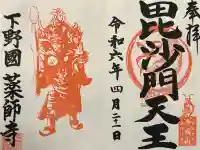 奉拝
毘沙門天王
令和六年四月二十一日
下野國 薬師寺